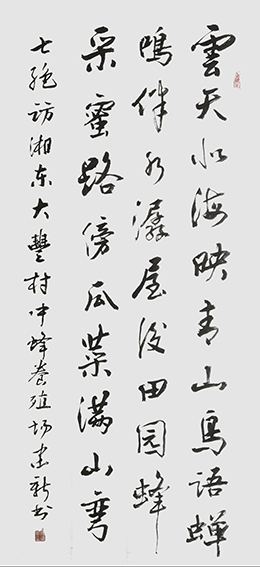 雲天如海映青山鳥語蟬
鳴伴水潺屋後田園蜂
采蜜路傍瓜菜滿山彎
七絶訪湘东大豐村中蜂養殖场志新书